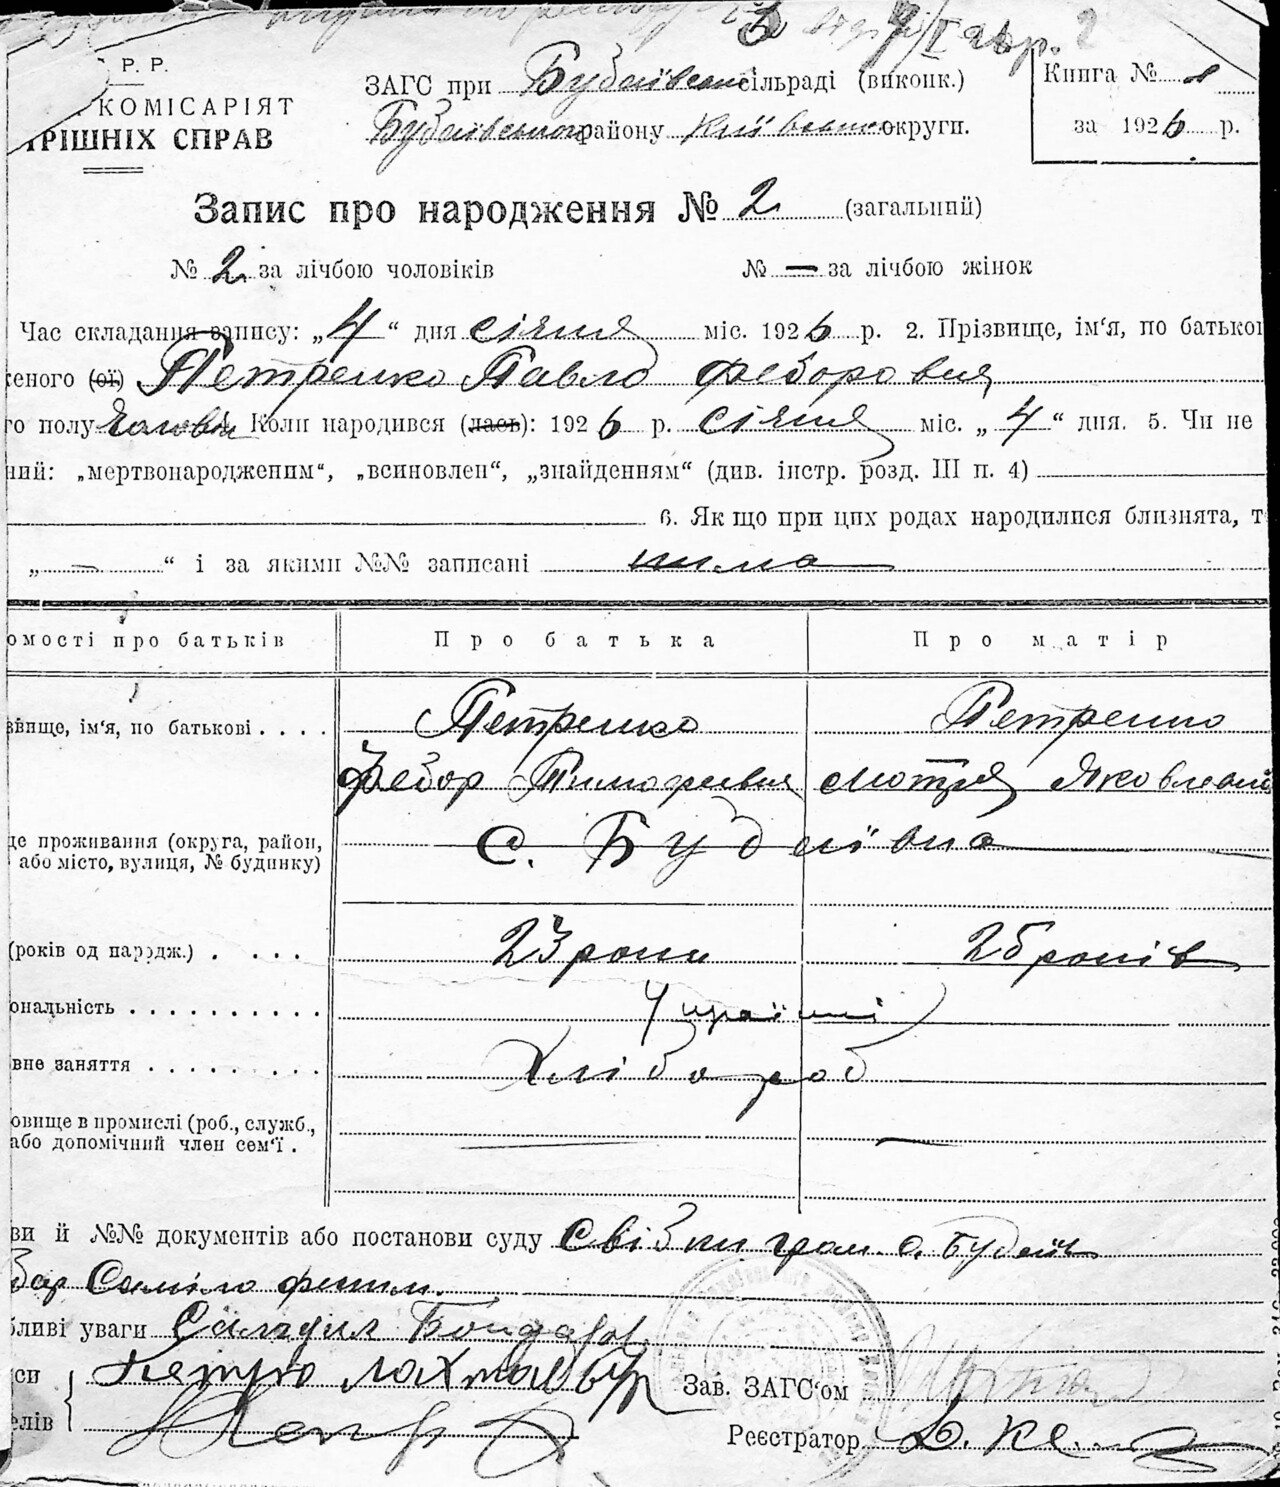 Р. Р.
КОМІСАРІЯТ
ТРІШНІХ СПРАВ
ЗАГС при Будаївськ сільраді (виконк.)
Будаївського району Київської округи.
Книга № 1
за 1926 р.
Запис про народження № 2 (загальний)
№ 2 за лічбою чоловіків № — за лічбою жінок
Час складання запису: „4“ дня січня міс. 1926 р. 2. Прізвище, ім‘я, по батької
женого (ої) Петренко Павло Федорович
го полу Чоловіч Коли народився (лась): 1926 р. січня міс. „4“ дня. 5. Чи не
ний: „мертвонародженим“, „всиновлен“, „знайденням“ (див. інстр. розд. III п. 4)
6. Як що при цих родах народилися близнята, т
„—“ і за якими №№ записані нема
омості про батьків Про батька Про матір
звище, ім‘я, по батькові . . . . Петренко Петренко
Федор Тимофевич Мотря Яковлевна
це проживання (округа, район, с. Будаївка
або місто, вулиця, № будинку)
(років од народж.) . . . . 23 роки 25 років
ональність . . . . . . . . . . Українці
вне заняття . . . . . . . . Хлібороб
овище в промислі (роб., служб., —— ——
або допомічний член сем‘ї .
ви й №№ документів або постанови суду Свідки гром. с. Будаїв
бливі уваги Бондар
си Петро
елів
Зав. ЗАГС‘ом
Реєстратор